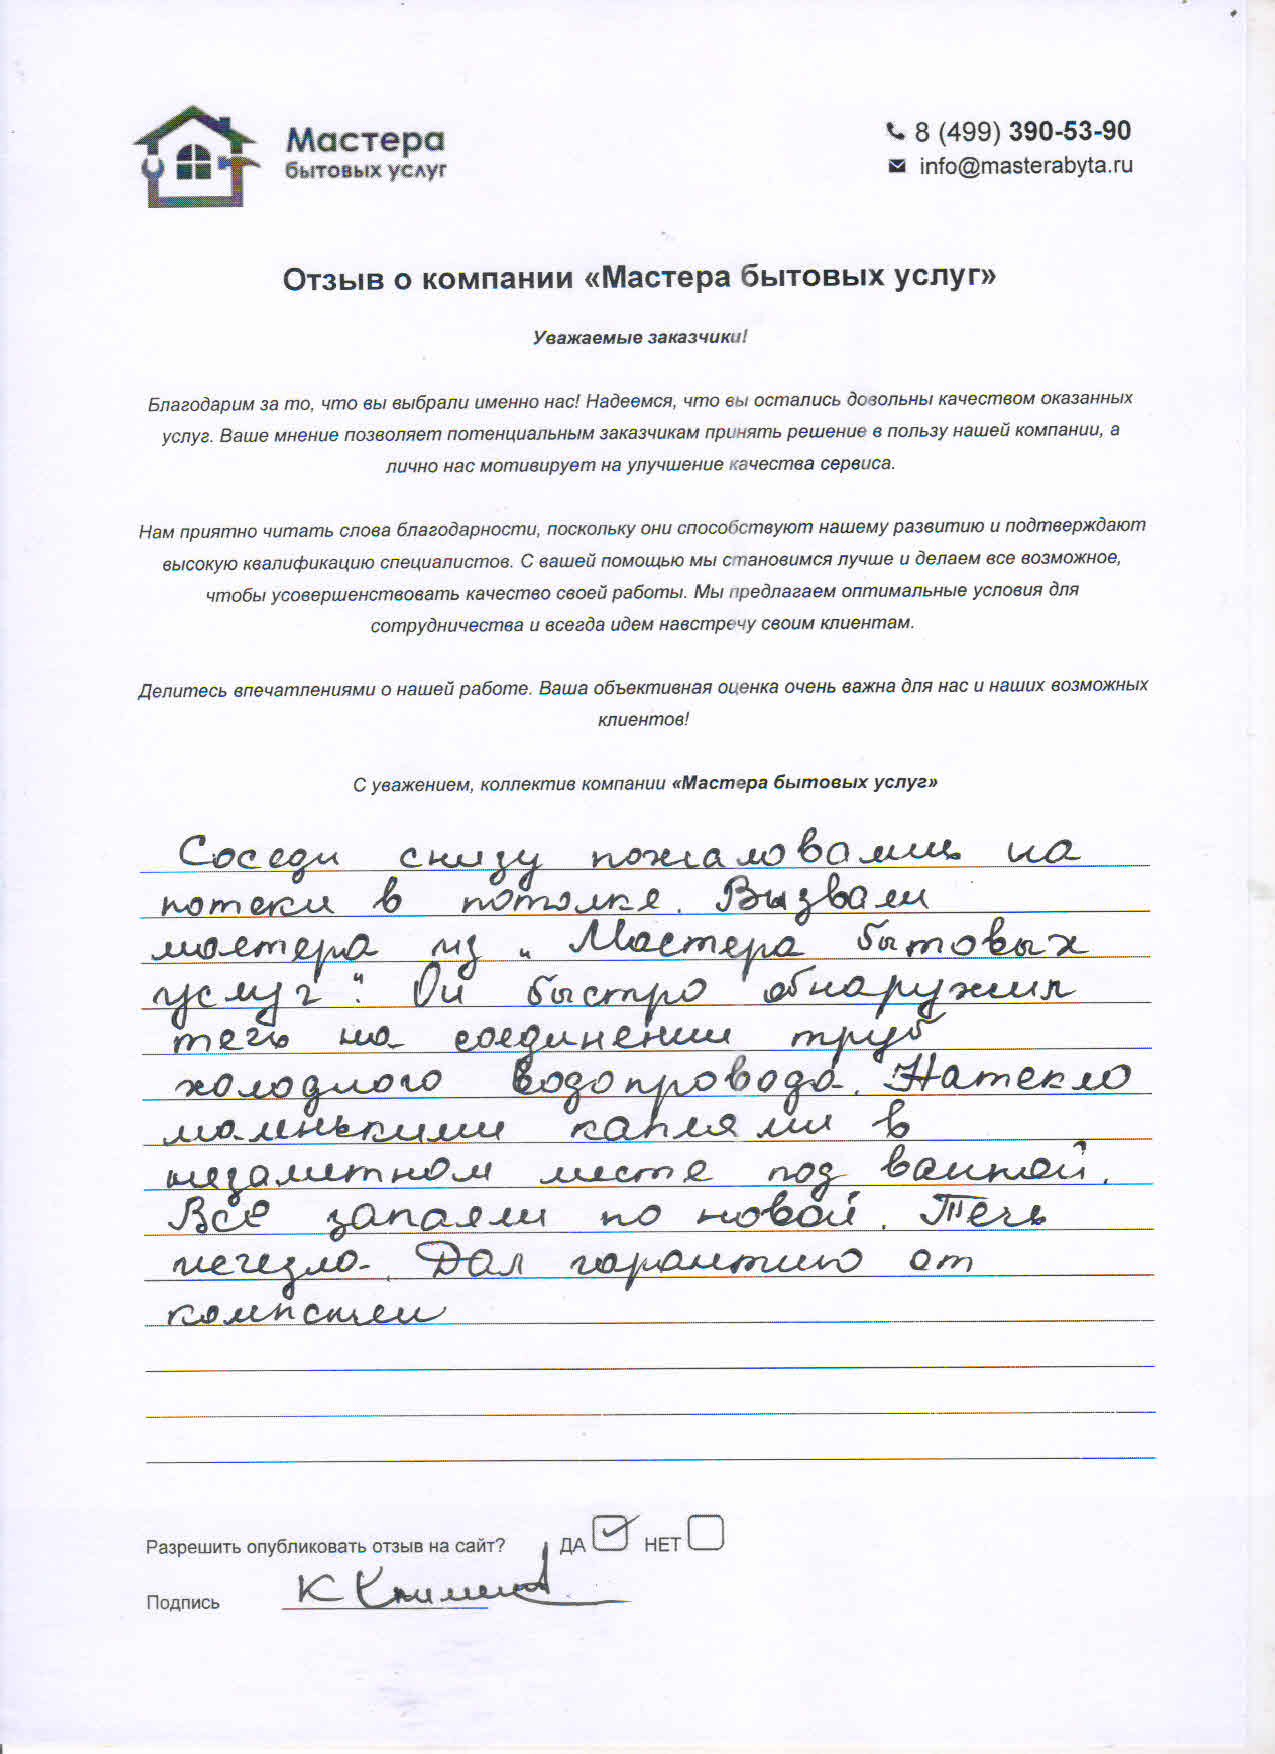 Мастера
бытовых услуг
8 (499) 390-53-90
info@masterabyta.ru
Отзыв о компании «Мастера бытовых услуг»
Уважаемые заказчики!
Благодарим за то, что вы выбрали именно нас! Надеемся, что вы остались довольны качеством оказанных
услуг. Ваше мнение позволяет потенциальным заказчикам принять решение в пользу нашей компании, а
лично нас мотивирует на улучшение качества сервиса.
Нам приятно читать слова благодарности, поскольку они способствуют нашему развитию и подтверждают
высокую квалификацию специалистов. С вашей помощью мы становимся лучше и делаем все возможное,
чтобы усовершенствовать качество своей работы. Мы предлагаем оптимальные условия для
сотрудничества и всегда идем навстречу своим клиентам.
Делитесь впечатлениями о нашей работе. Ваша объективная оценка очень важна для нас и наших возможных
клиентов!
С уважением, коллектив компании «Мастера бытовых услуг»
Соседи снизу пожаловались на
потеки в потолке. Вызвали
мастера из „Мастера бытовых
услуг“. Он быстро обнаружил
течь на соединении труб
холодного водопровода. Натекло
маленькими каплями в
незаметном месте под ванной.
Всё запаяли по новой. Течь
исчезла. Дал гарантию от
компании
Разрешить опубликовать отзыв на сайт? ДА НЕТ
Подпись